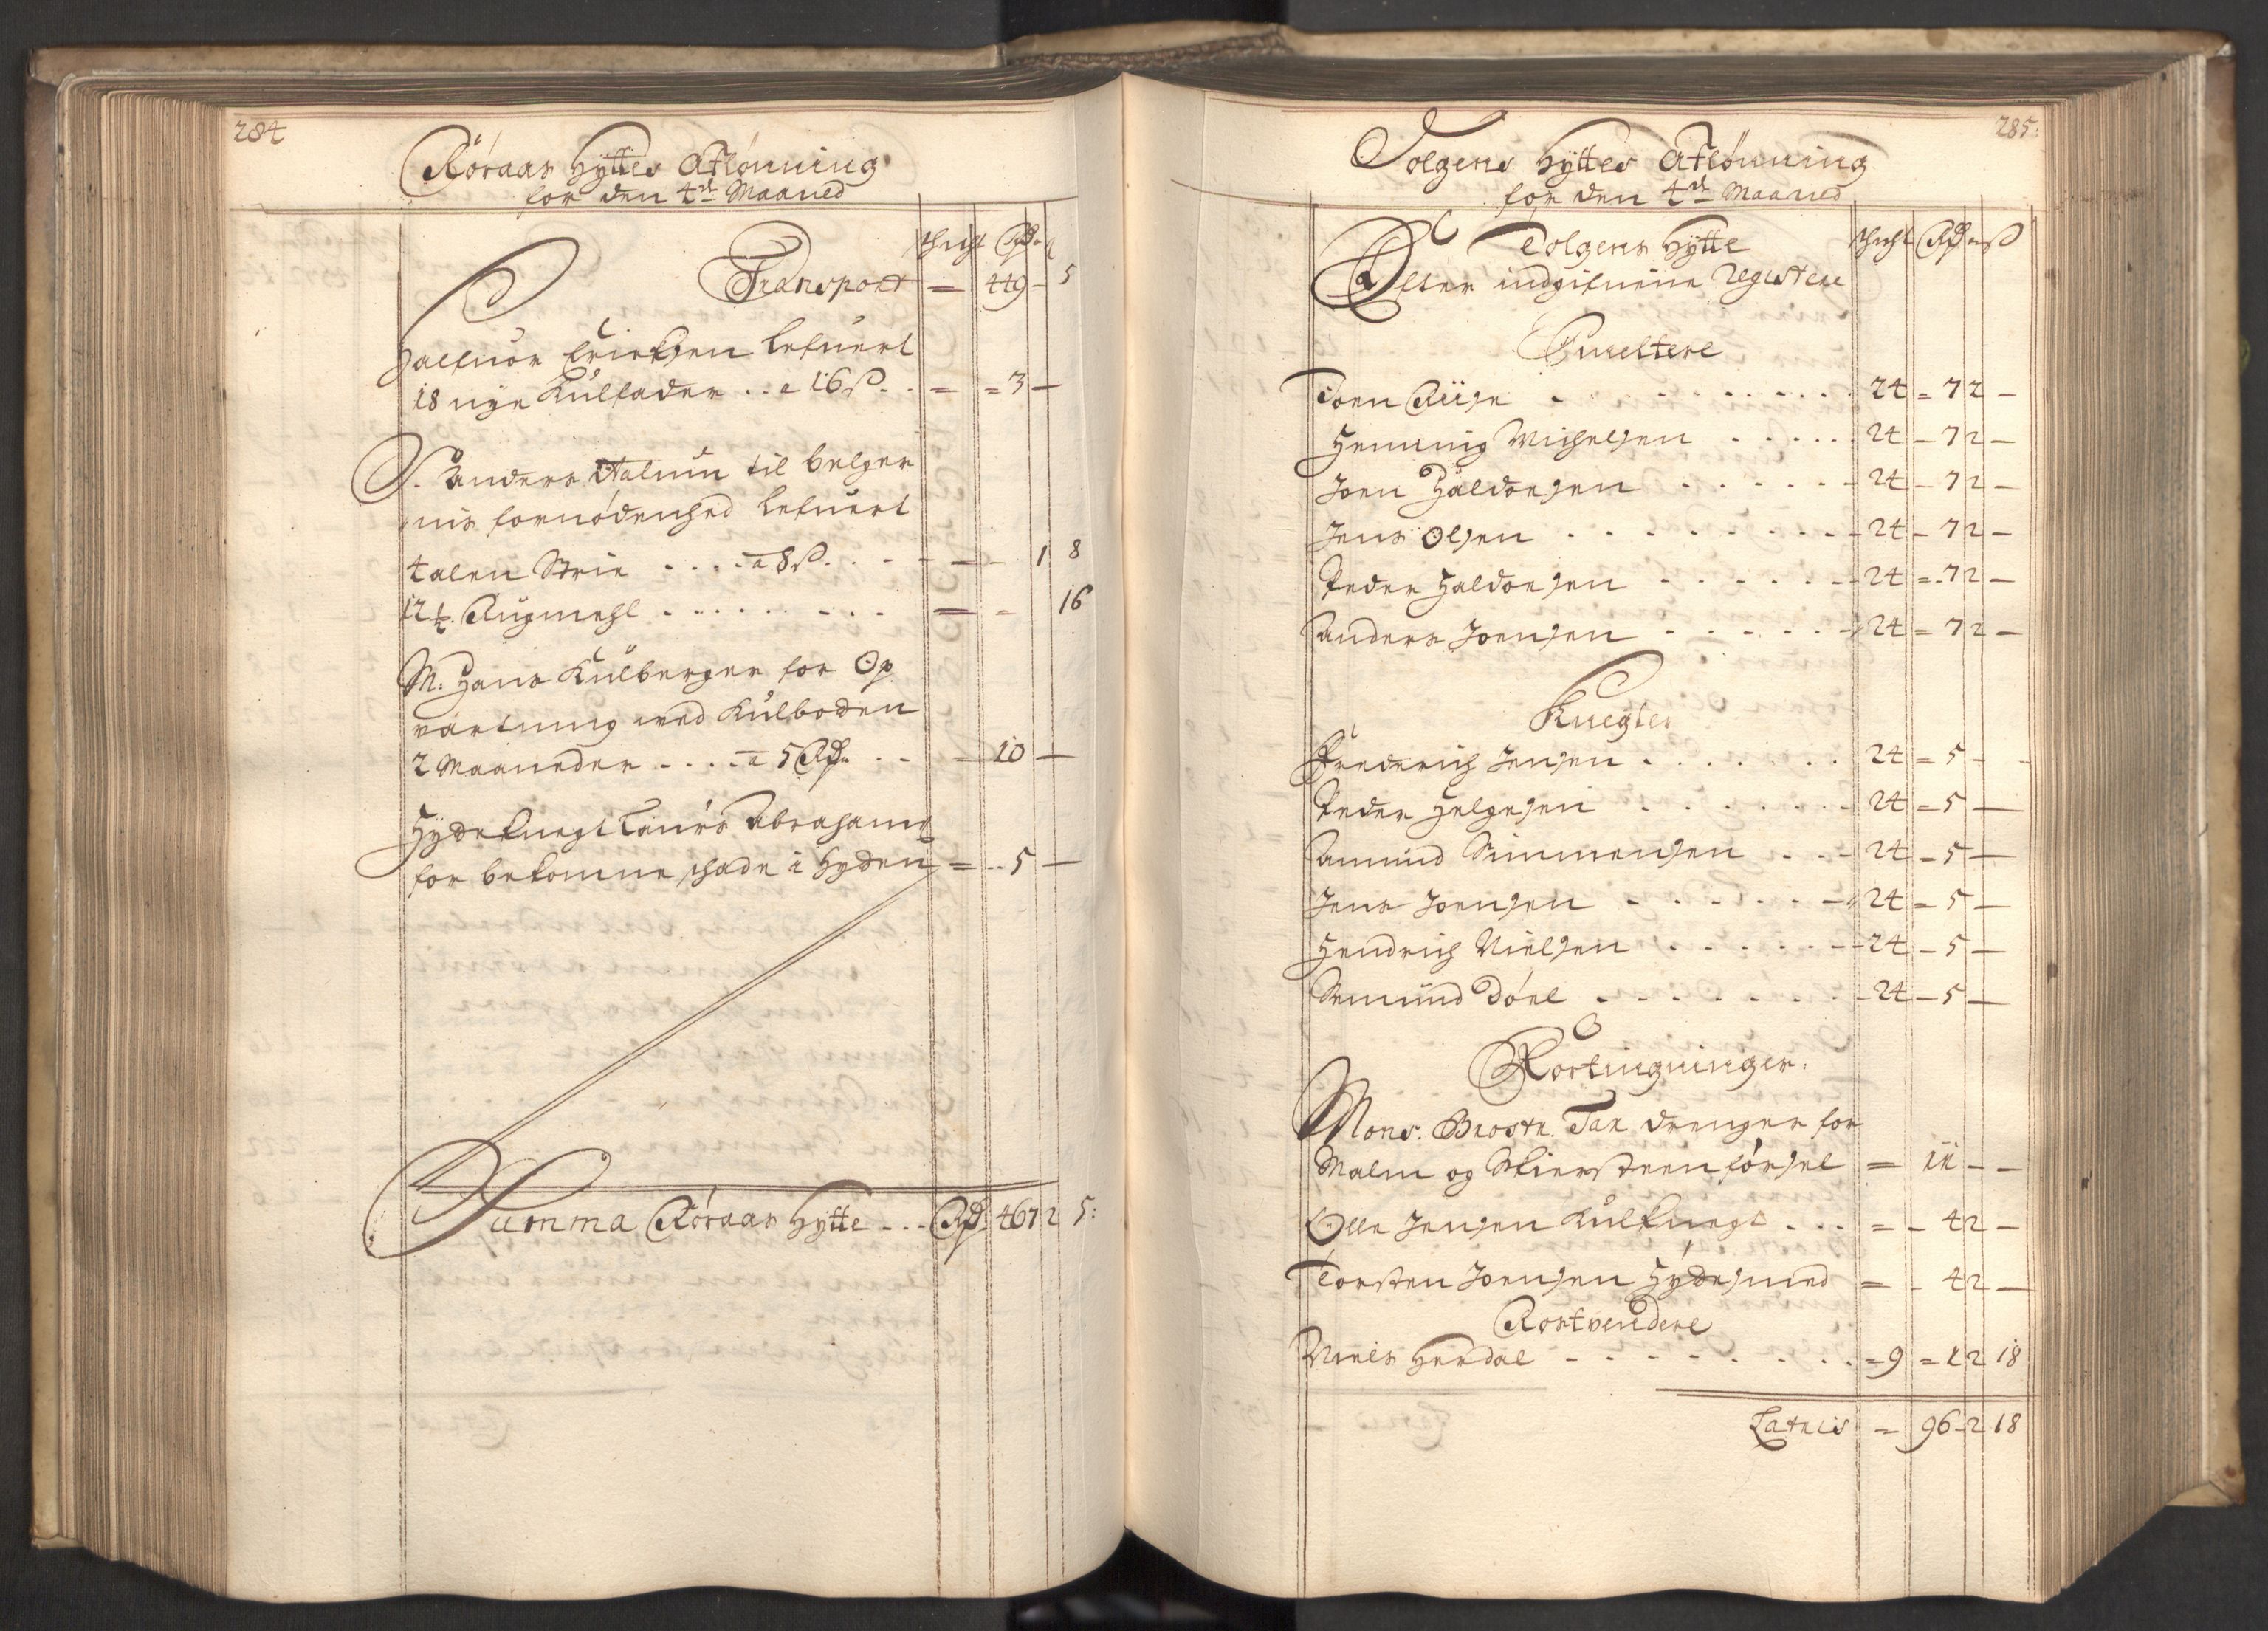 284
Røraas Hytte's Afløñning
for den 4de Maaned
schicht Rdr
Transport = 449 - 5
Halfuor Erichsen lefuert
18 nye Kulfader .. a 16 ß. . = = 3 —
S. Anders til belger
nis fornødenhed lefuert
4 alen Strie . . . . a 8 ß. . . — — 1 8
12 ℔. Rugmehl . . . . . . . . — - 16
M: Hans Kulberger for Op
vartning ved Kulboden
2 Maaneder . . . . a 5 Rdr . . = 10 —
Hydeknegt Laurs Abrahams
for bekomne schade i Hyden = .. 5 —
Summa Røraas Hytte - . . Rdr. 467 2 5:
285:
Tolgens Hyttes Afløñning
for den 4de Maaned
Tolgens Hytte schicht Rdr ß
Efter indgifuene Registere
Smeltere
Joen Riise . . . . . . . . . . 24 = 7 2 —
Henning Michelsen . . . . . 24 - 7 2 —
Joen Haldorsen . . . . . . 24 - 7 2 —
Jens Olsen . . . . . . . . . 24 - 7 2 —
Peder Haldorsen . . . . . . 24 = 7 2 —
Anders Joensen . . . . . 24 = 7 2 —
Knegter
Frederich Jensen . . . . . . . 24 = 5 - -
Peder Helgesen . . . . . . . 24 = 5 —
Amund Simmensen . . . 24 - 5 —
Jens Joensen . . . . . . 24 = 5 —
Hendrich Nielsen . . . . . . 24 - 5 —
Semund Døel . . . . . . . . 24 - 5 —
Fortingninger.
Mons. Brostr. Tax drenger for
Malm og Skiersteen førsel = 11 - -
Olle Jensen Kulknegt . . . = - 4 2 —
Torsten Joensen Hydesmed = - 4 2 —
Rostvendere
Niels Herdal . . . . . . . . = 9 = 1 2 18
Lateris = 96 - 2 18